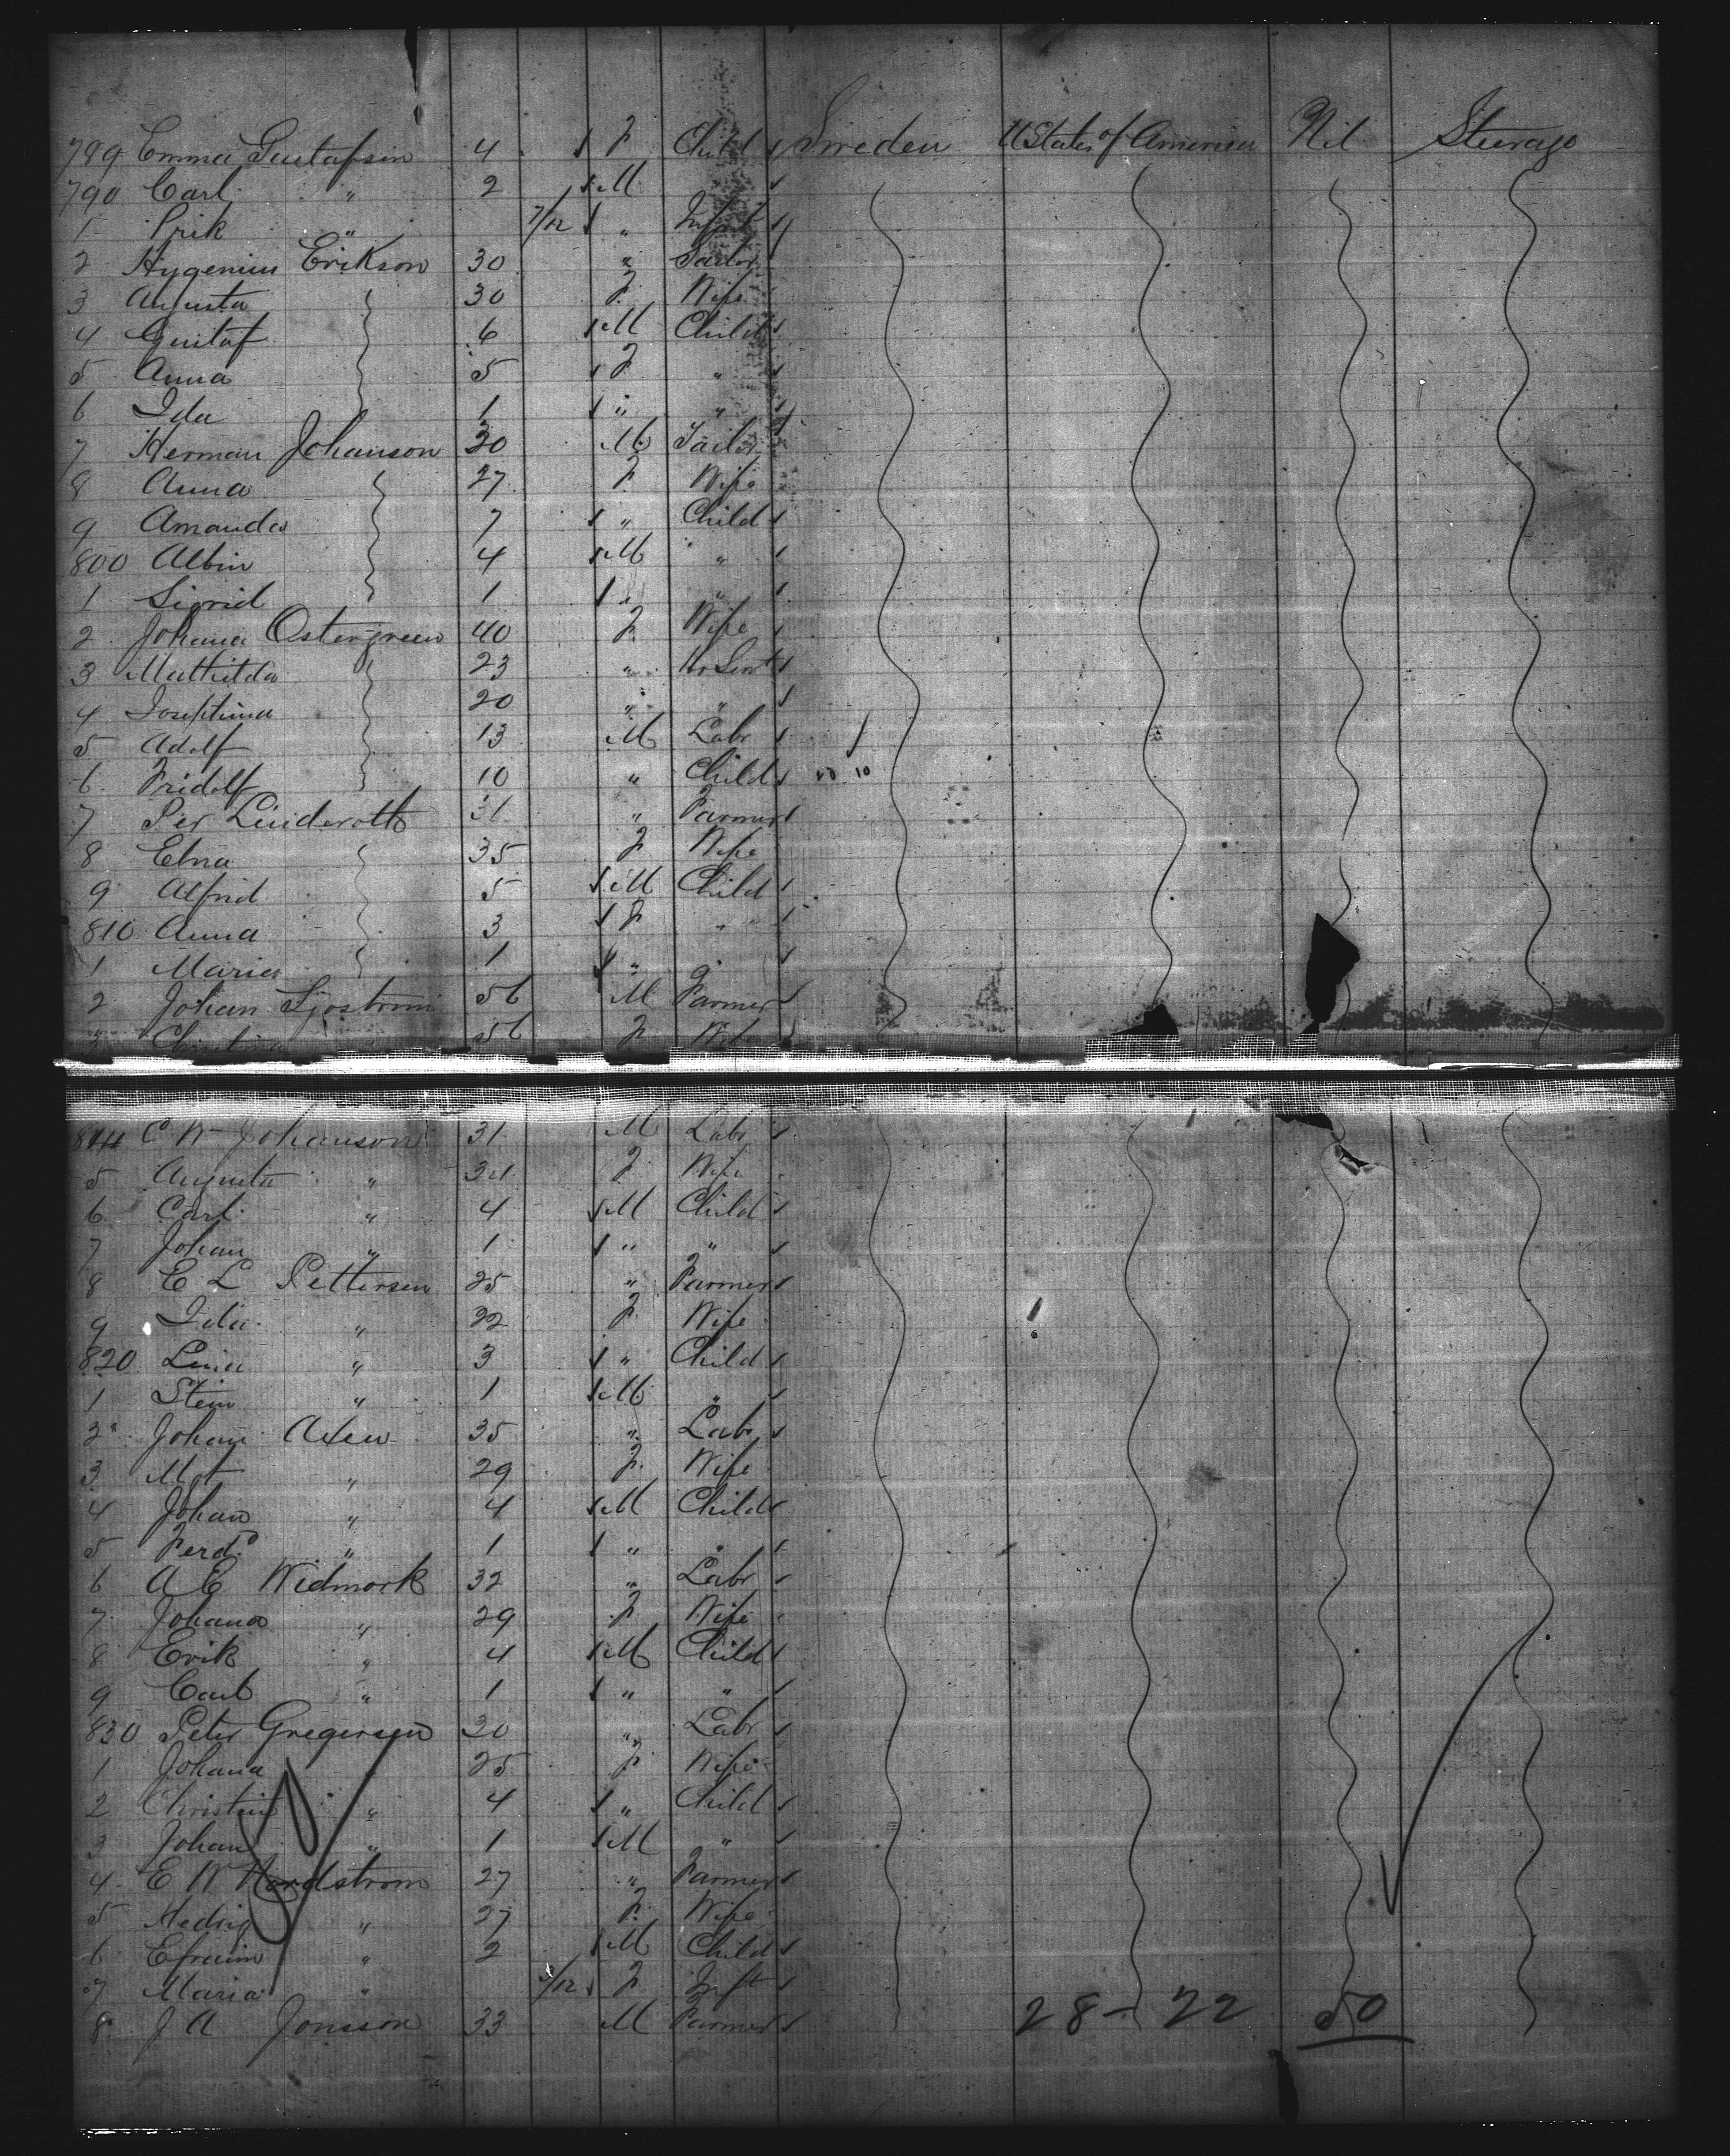 789 Emma Gustafsin 4 F Child Sweden U States of America Nil Steerage
790 Carl " 2 M
1 Erik " 7/12 " Infnt
2 Hygenius Erikson 30 " Tailor
3 Augusta 30 F Wife
4 Gustaf 6 M Child
5 Anna 5 F "
6 Ida 1 " "
7 Herman Johanson 30 M Tailor
8 Anna 27 F Wife
9 Amanda 7 " Child
800 Albin 4 M "
1 Sigrid 1 " "
2 Johana Ostergreen 40 F Wife
3 Mathilda 23 " Ho Servt
4 Josephina 20 " "
5 Adolf 13 M Labr
6 Fridolf 10 " Child 10
7 Per Linderoth 31 " Farmer
8 Elna 35 F Wife
9 Alfrid 5 M Child
810 Anna 3 F "
1 Maria 1 " "
2 Johan Sjostrom 56 M Farmer
3 Christina " 56 F Wife
814 C W Johanson 31 M Labr
5 Augusta " 34 F Wife
6 Carl " 4 M Child
7 Johan " 1 " "
8 E L Pettersen 25 " Farmer
9 Ida " 22 F Wife
820 Lina " 3 " Child
1 Sten " 1 M "
2 Johan Axen 35 " Labr
3 Mat " 29 F Wife
4 Johan " 4 M Child
5 Ferd " 1 " "
6 A E Widmork 32 " Labr
7 Johana " 29 F Wife
8 Erik " 4 M Child
9 Carl " 1 " "
830 Peter Gregersen 30 " Labr
1 Johana 25 F Wife
2 Christin " 4 " Child
3 Johan " 1 M "
4 E W Nordstrom 27 " Farmer
5 Hedvig " 27 F Wife
6 Efraim " 2 M Child
7 Maria " /12 F Inft
8 J A Jonsson 33 M Farmer 28 - 22 50